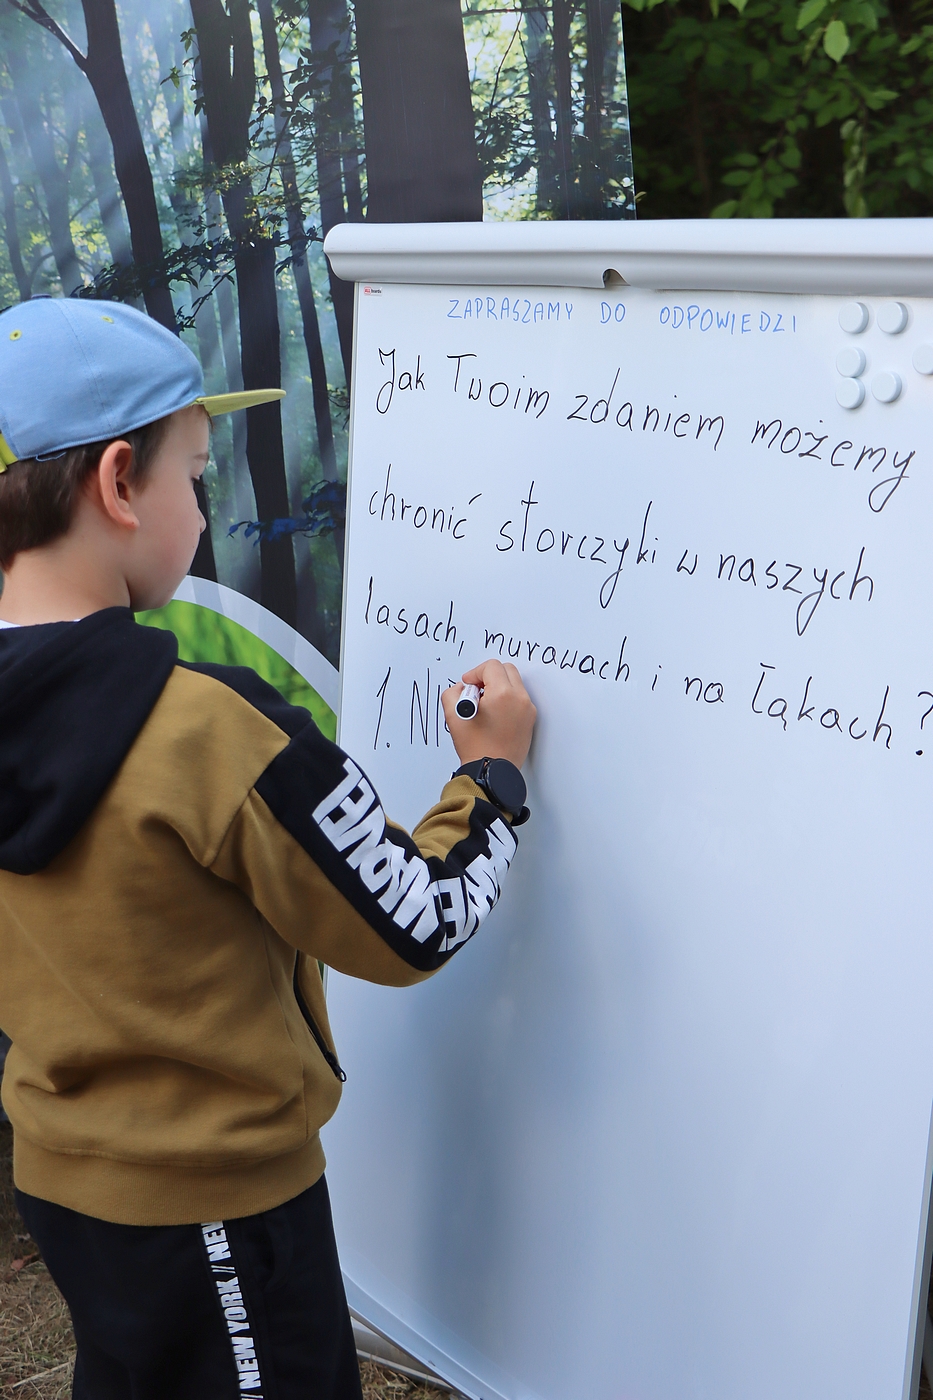 ZAPRASZAMY DO ODPOWIEDZI
Jak Twoim zdaniem możemy
chronić storczyki w naszych
lasach, murawach i na łąkach?
1. NI
// NEW YORK // NEW